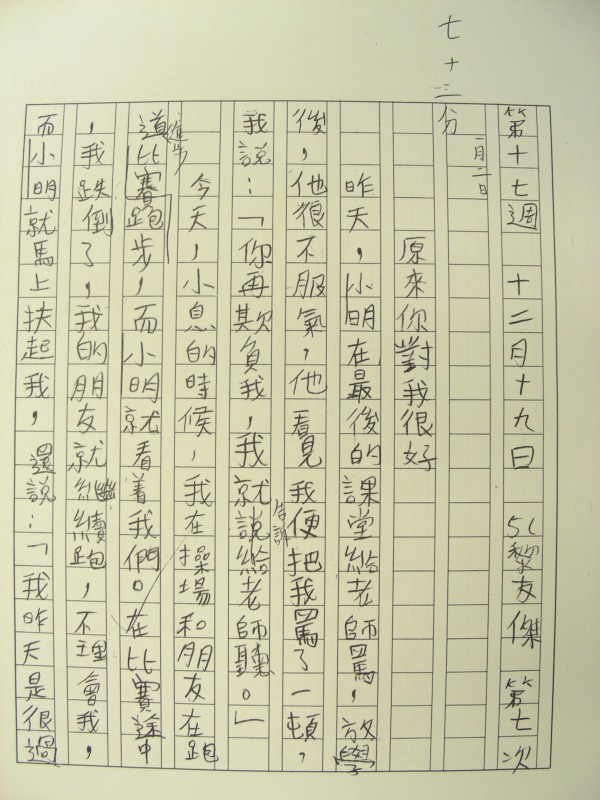 第十七週 十二月十九日 5L黎友傑 第七次
七十三分
一月二日
原來你對我很好
昨天，小明在最後的課堂給老師罵，放學
後，他很不服氣，他看見我便把我罵了一頓，
我說：「你再欺負我，我就說給老師聽。」
告訴
今天，小息的時候，我在操場和朋友在跑
進步
道比賽跑步，而小明就看着我們。在比賽途中
，我跌倒了，我的朋友就繼續跑，不理會我，
而小明就馬上扶起我，還說：「我昨天是很過